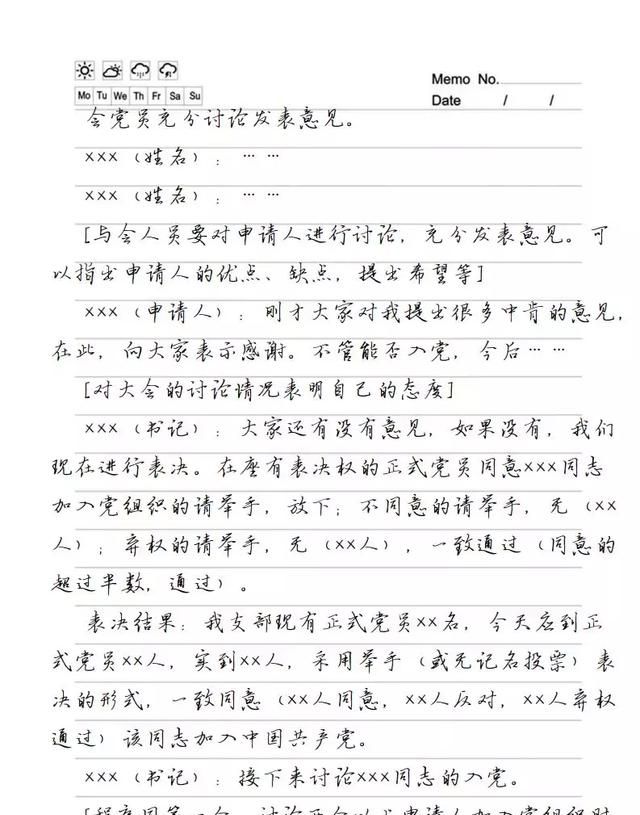 Memo No.
Mo Tu We Th Fr Sa Su
Date / /
会党员充分讨论发表意见。
×××（姓名）：… …
×××（姓名）：… …
[与会人员要对申请人进行讨论，充分发表意见。可
以指出申请人的优点、缺点，提出希望等]
×××（申请人）：刚才大家对我提出很多中肯的意见，
在此，向大家表示感谢。不管能否入党，今后… …
[对大会的讨论情况表明自己的态度]
×××（书记）：大家还有没有意见，如果没有，我们
现在进行表决。在座有表决权的正式党员同意×××同志
加入党组织的请举手，放下；不同意的请举手，无（××
人）；弃权的请举手，无（××人），一致通过（同意的
超过半数，通过）。
表决结果：我支部现有正式党员××名，今天应到正
式党员××人，实到××人，采用举手（或无记名投票）表
决的形式，一致同意（××人同意，××人反对，××人弃权
通过）该同志加入中国共产党。
×××（书记）：接下来讨论×××同志的入党。
[程序同第一个，讨论两个以上申请人加入党组织时